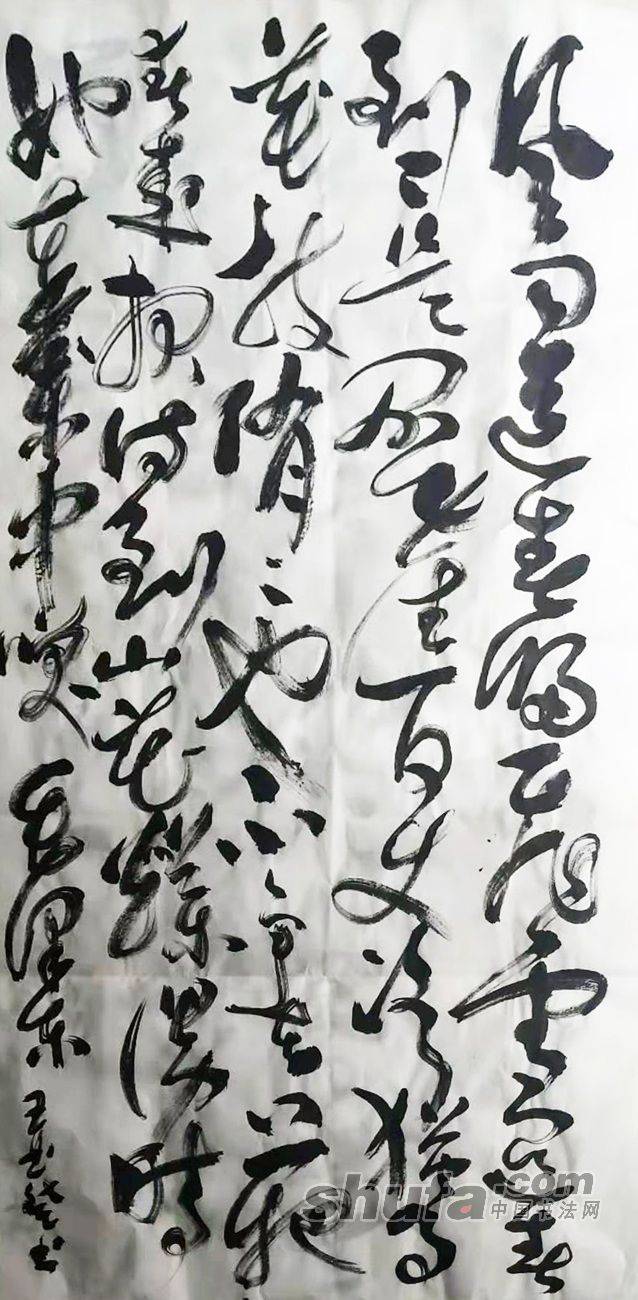 风雨送春歸飞雪迎春
到已是悬崖百丈冰猶有
花枝俏々也不争春只把
春来报待到山花爛漫时
她在叢中笑 毛泽东 王 书
shufa.com
中国书法网